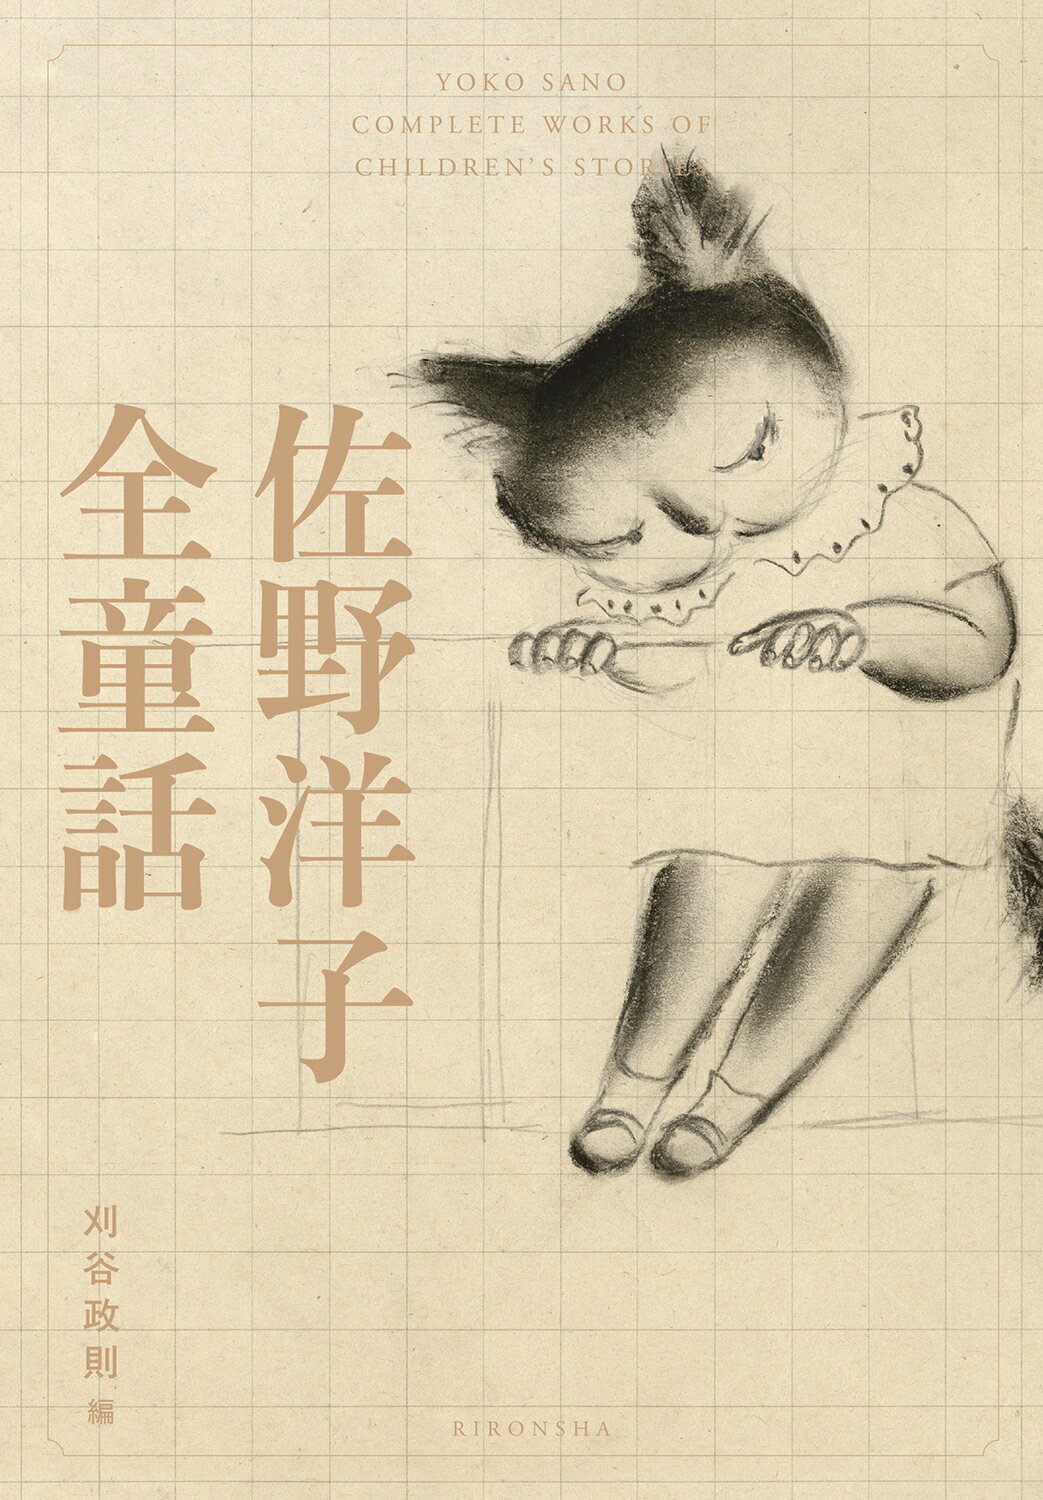 YOKO SANO
COMPLETE WORKS OF
CHILDREN'S STORIES
佐野洋子
全童話
刈谷政則 編
RIRONSHA